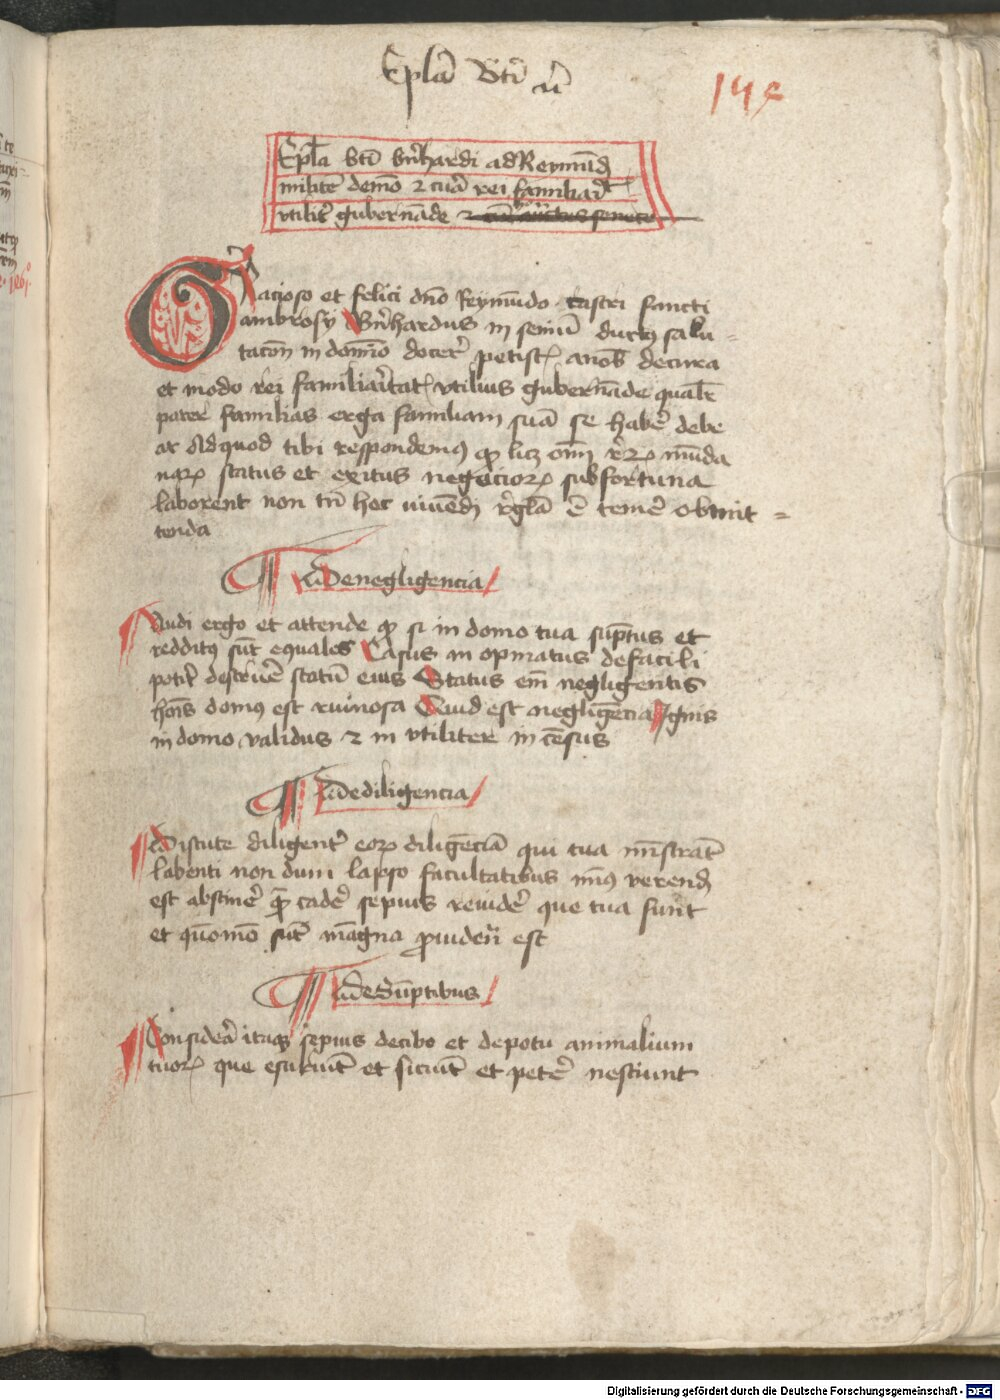 Ep̄la Bti
14
Ep̄la bti b̄nhardi ad Reymūd
militē de mō 2 cura rei familiar
vtilit̄ gubernāde 2
Gracioso et felici dn̄o Reymūdo castri sancti
ambrosy B̄nhardus in seniū duct9 salu =
tacōn in domīo docer̄ petist anob de cura
et modo rei familiar̄itat vtilius gubernāde qualr̄
pater familias erga familiam suā se habē debe
at Ad quod tibi respondem9 qp licz om̄i r̄rꝝ mūda
narꝝ status et exitus negociorꝝ sub fortuna
laborent non tn̄ hec viuēdi r̄gla ē temē obmit =
tenda
de negligencia
Audi ergo et attende qp si in domo tua sūptus et
reddit9 sūt equales Casus in opinatus defacili
potit destruē statū eius Status em̄ negligentis
hōis dom9 est ruinosa Quid est negligēcia Ignis
in domo validus 2 in vtiliter in cēsus
de diligencia
Discute diligent̄ eorꝝ diligēciā qui tua mīstrāt
labenti non dum lapso facultatibus mī9 verend
est abstinē qr̄ cadē sepius reuidē que tua sunt
et quomō sūt māgna p̄uiden est
de Sūptibus
Considēa itaq sepius de cibo et de potu animalium
tuorꝝ que esuriūt et siciūt et petē nesciunt
Digitalisierung gefördert durch die Deutsche Forschungsgemeinschaft - DFG